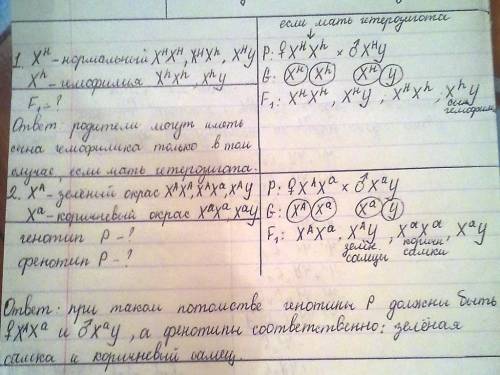 если мать гетерозигота
1. Xᴴ – нормальный XᴴXᴴ, XᴴXʰ, XᴴY
Xʰ – гемофилия XʰXʰ, XʰY
F₁ – ?
Ответ: родители могут иметь
сына гемофилика только в том
случае, если мать гетерозигота.
P: ♀XᴴXʰ × ♂XᴴY
G: Xᴴ Xʰ Xᴴ Y
F₁: XᴴXᴴ, XᴴY, XᴴXʰ, XʰY
сын
гемофилик
2. Xᴬ – зелёный окрас XᴬXᴬ, XᴬXᵃ, XᴬY
Xᵃ – коричневый окрас XᵃXᵃ, XᵃY
генотип P – ?
фенотип P – ?
P: ♀XᴬXᵃ × ♂XᵃY
G: Xᴬ Xᵃ Xᵃ Y
F₁: XᴬXᵃ, XᴬY, XᵃXᵃ, XᵃY
зелён. коричн.
самцы самки
Ответ: при таком потомстве генотипы P должны быть
♀XᴬXᵃ и ♂XᵃY, а фенотипы соответственно: зелёная
самка и коричневый самец.